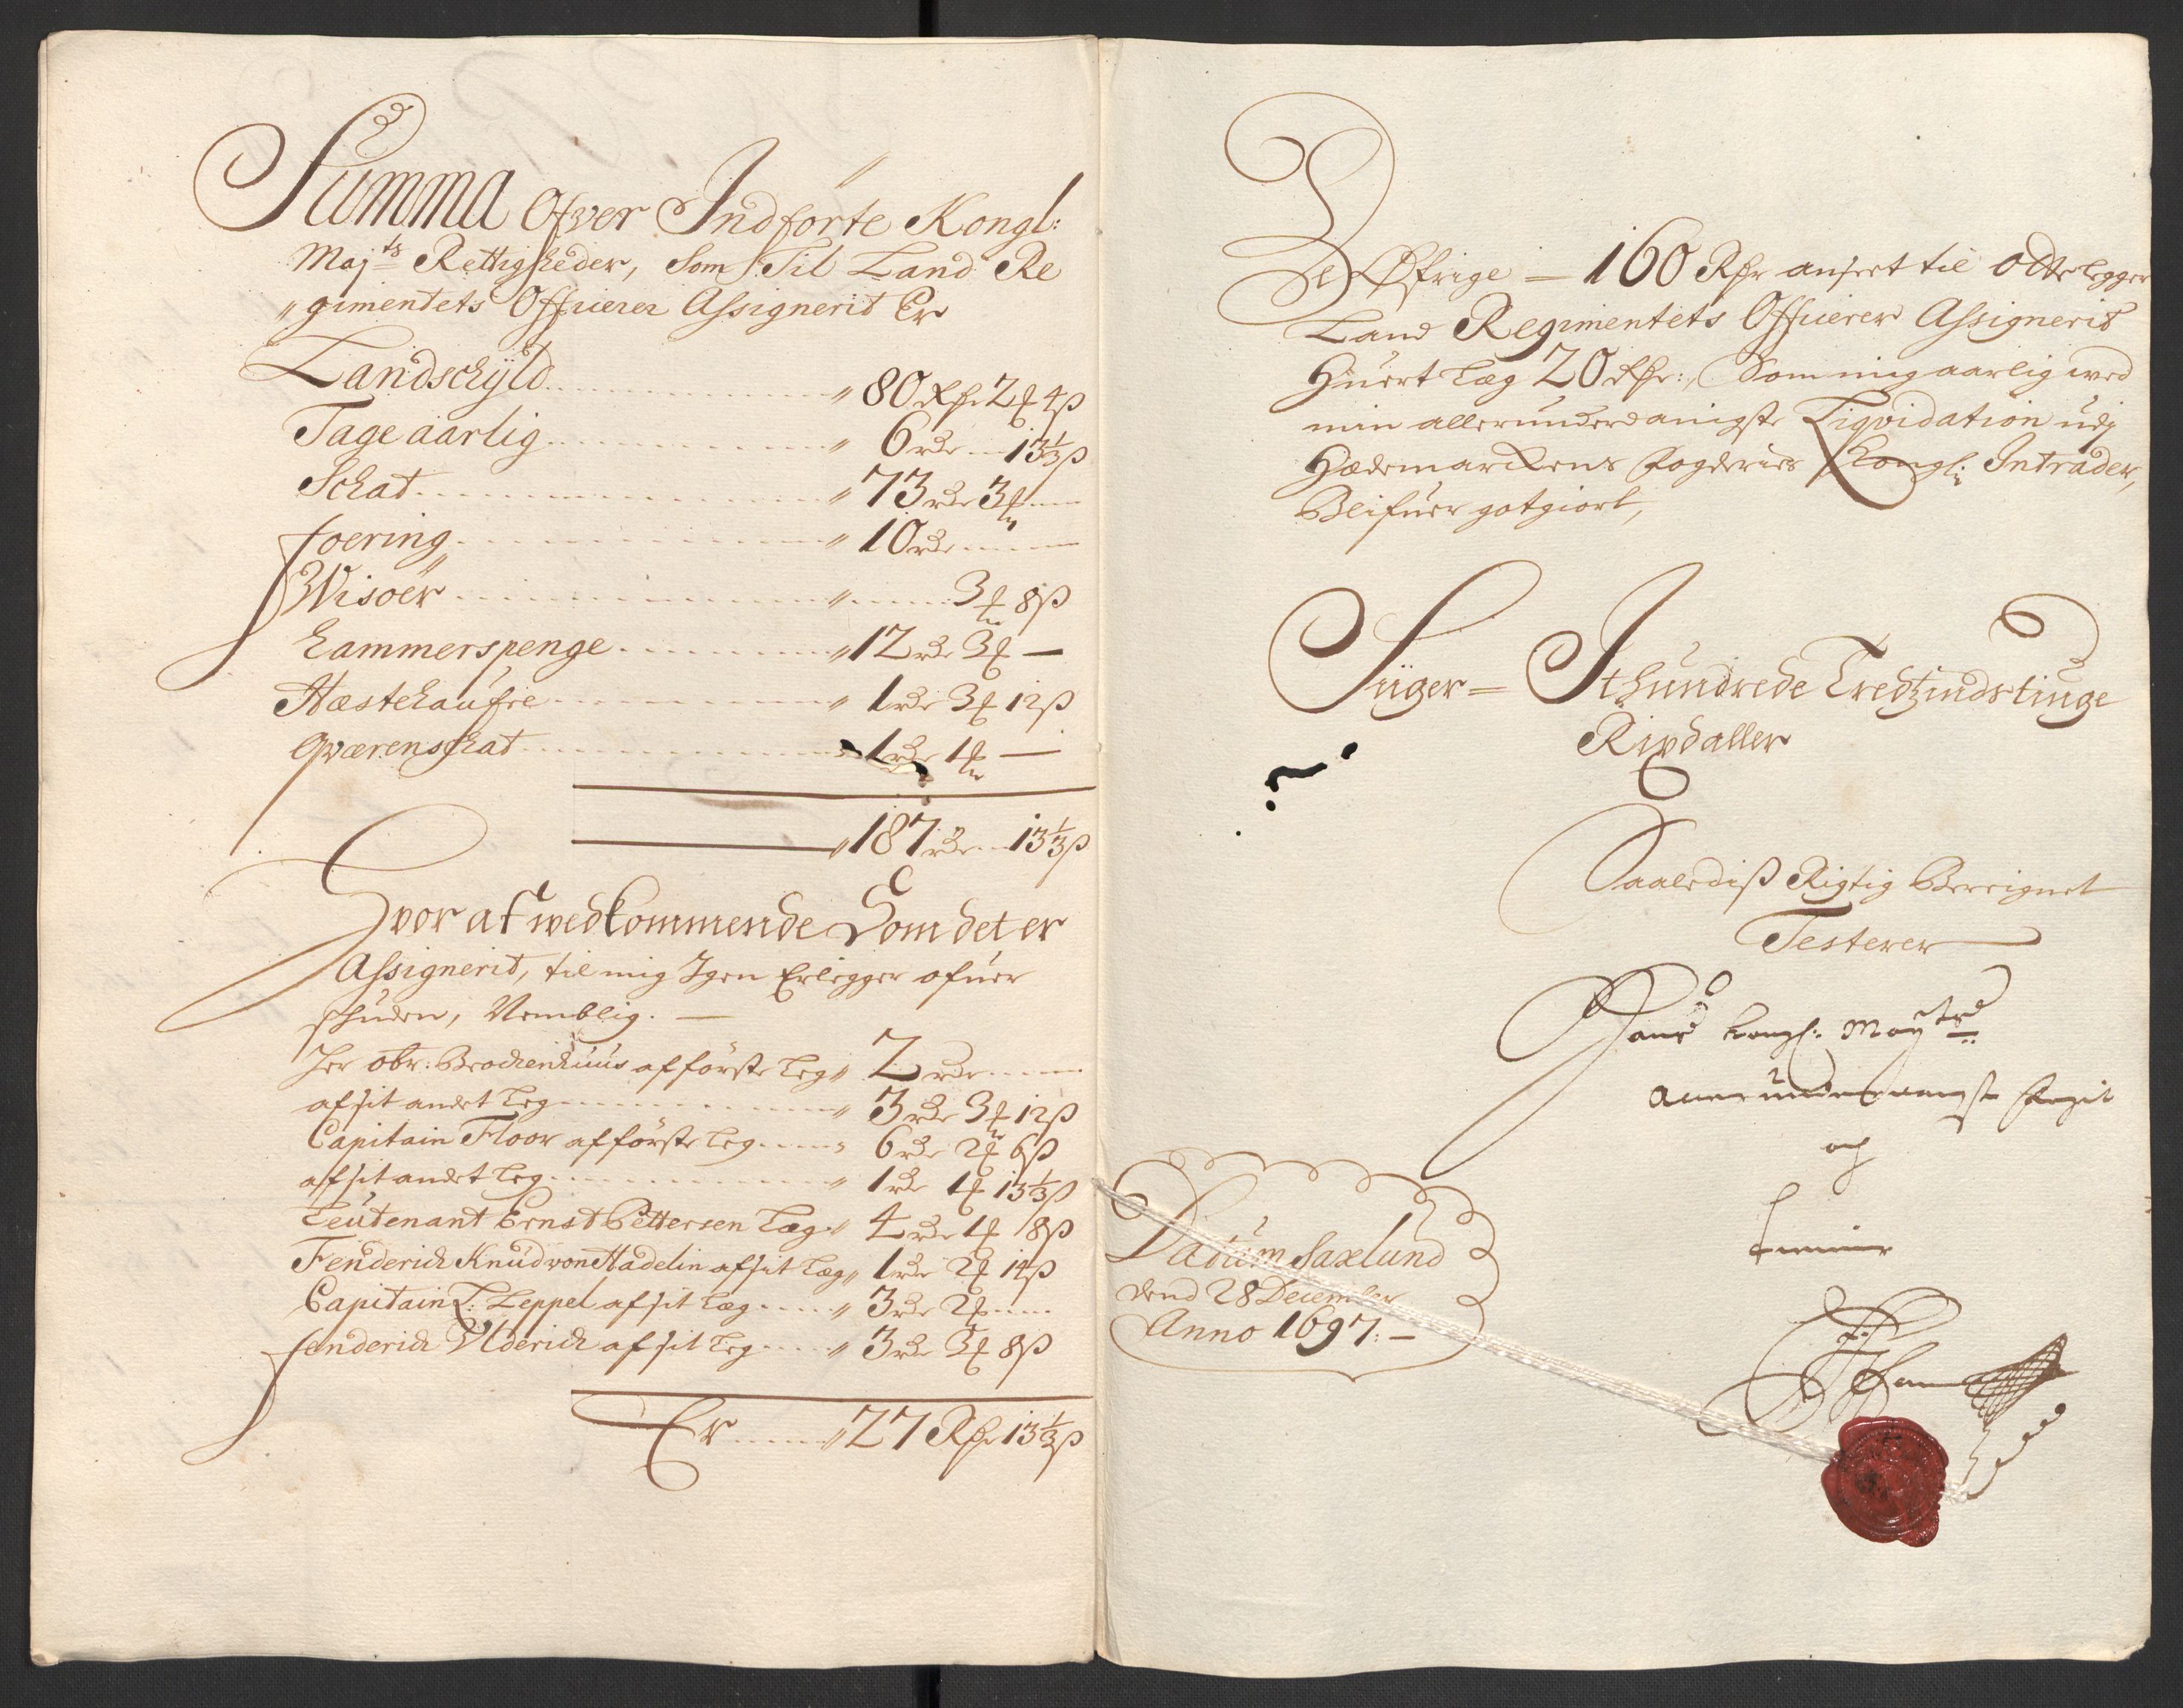 Summa Ofver Indförte Kongl:
Maj^ts Rettigheder, Som Til Land Re
"gimentets Officerer Assignerit Er
Landschÿld ......... " 80 Rdr 2 ƒ 4 ß
Tage aarlig ......... " 6 rdr .... 13⅓ ß
Schat ......... " 73 rdr 3 ƒ ....
foering ......... " 10 rdr ....
Wisöer ......... " .... 3 ƒ 8 ß
Kammerspenge ......... " 12 rdr 3 ƒ —
Hæstehaufre ......... " 1 rdr 3 ƒ 12 ß
Qværenschat ......... " 1 rdr 1 ƒ —
" 187 rdr .... 13⅓ ß
Hvor af wedkommende Som det er
Assignerit, til mig Igen Erlegger ofuer
schuden, Nemblig. —
Her obr: Brochenhuus af förste Leg " 2 rdr ....
af sit andet Leg ......... " 3 rdr 3 ƒ 12 ß
Capitain Floor af förste Leg .... " 6 rdr 2 ƒ 6 ß
af sit andet Leg ......... " 1 rdr 1 ƒ 13⅓ ß
Leutenant Ernst Pettersen Læg " 4 rdr 1 ƒ 8 ß
Fenderich Knud von Hadelin af sit Læg " 1 rdr 2 ƒ 14 ß
Capitain L: Leppel af sit Læg .... " 3 rdr 2 ƒ ....
fenderich Ulderich af sit Leg .... " 3 rdr 3 ƒ 8 ß
Er ....... " 27 Rdr 13⅓ ß
De Øfrige — 160 Rdr anført til otte legger
Land Regimentets Officerer Assignerit
Huert Læg 20 Rdr:, Som mig aarlig ved
min allerunderdanigste Liqvidation udj
Hædemarkens fogderies Kongl: Intrader,
Blifuer gotgiort,
Siiger = It hundrede Tredtzindstiuge
Rixdaller
Saalediß Rigtig Bereignet
Testerer
Hans Kongl: May^tz
allerunderdanigste fogit
och
tienner
Datum Saxlund
dend 28 December
Anno 1697: —